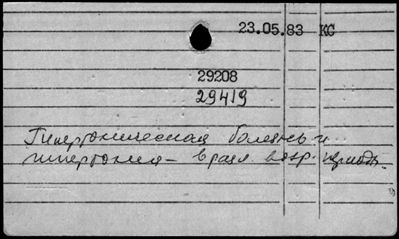 23.05.83 KC
29208
29419
Гипертоническая болезнь и
гипертония – в разл. возр. периоды.